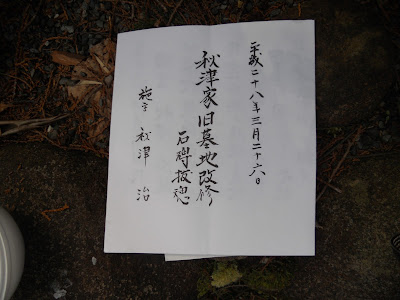 平成二十八年三月二十六日
秋津家旧墓地改修
石碑抜魂
施主 秋津 治